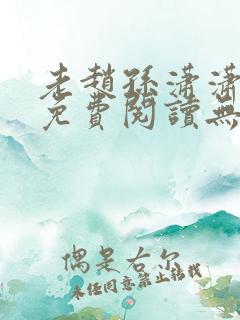 老趙孫瀟瀟
免費閱讀無
偶是右尔
未经同意禁止转载